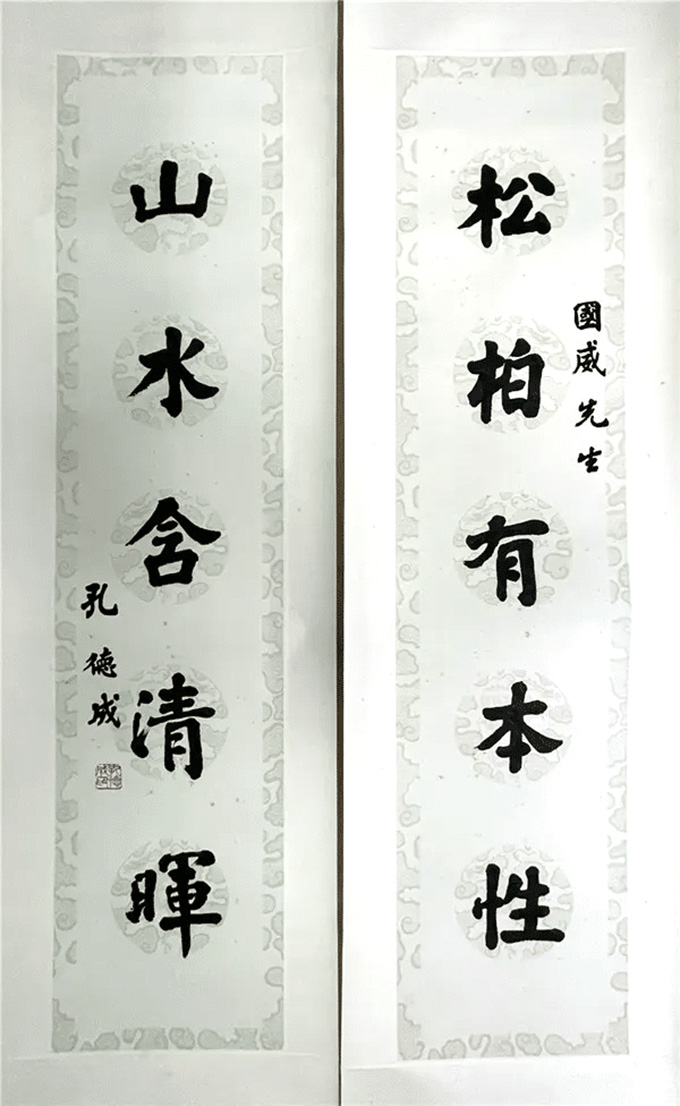 國威先生
松柏有本性
山水含清暉
孔德成